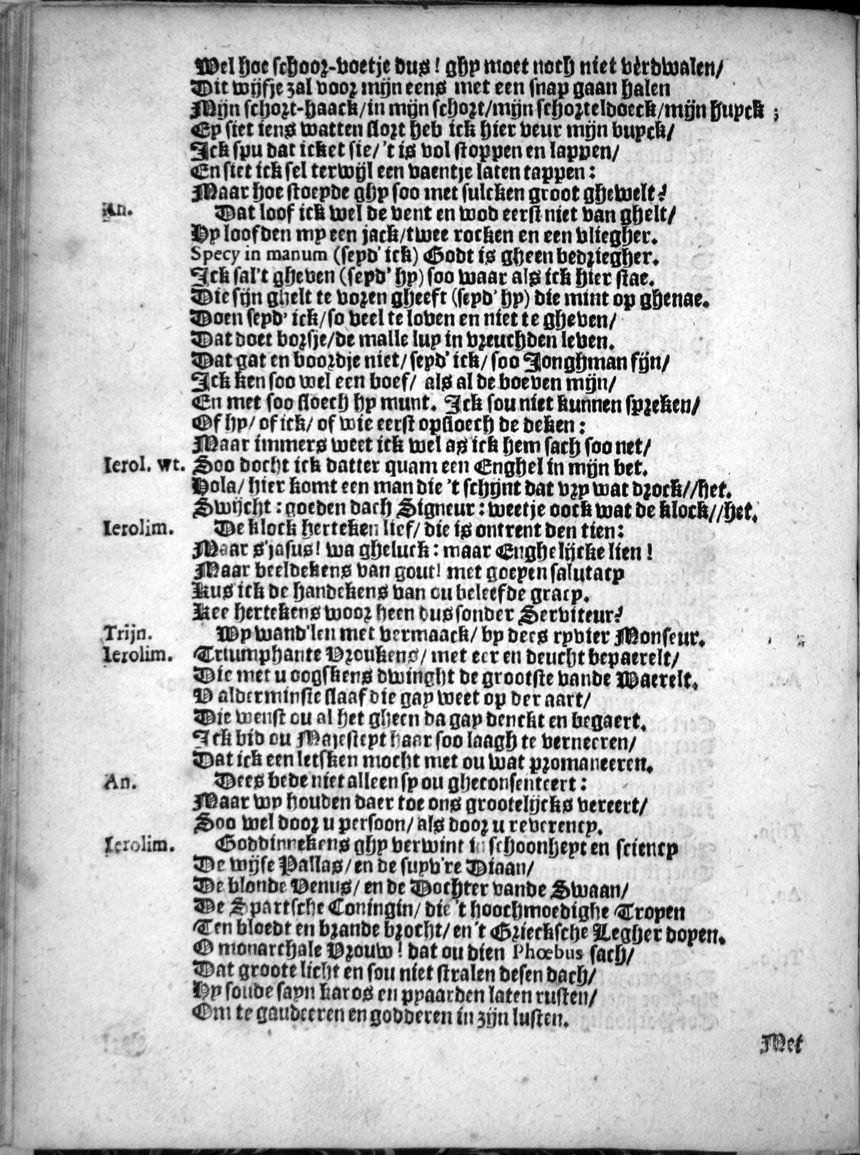 Wel hoe schoor-voetje dus! ghy moet noch niet verdwalen/
Dit wijfje zal voor mijn eens met een snap gaan halen
Mijn schort-haack/in mijn schort/mijn schorteldoeck/mijn huyck;
Ey siet iens watten slort heb ick hier veur mijn buyck/
Ick spu dat icket sie/'t is vol stoppen en lappen/
En siet ick sel terwijl een vaentje laten tappen:
Maar hoe stoeyde ghy soo met sulcken groot ghewelt?
An. Dat loof ick wel de vent en wod eerst niet van ghelt/
Hy loofden my een jack/twee rocken en een vliegher.
Specy in manum (seyd' ick) Godt is gheen bedriegher.
Ick sal't gheven (seyd' hy) soo waar als ick hier stae.
Die sijn ghelt te voren gheeft (seyd' hy) die mint op ghenae.
Doen seyd' ick/so veel te loven en niet te gheven/
Dat doet borsje/de malle luy in vreuchden leven.
Dat gat en boordje niet/seyd' ick/soo Jonghman fijn/
Ick ken soo wel een boef/ als al de boeven mijn/
En met soo sloech hy munt. Ick sou niet kunnen spreken/
Of hy/ of ick/ of wie eerst opsloech de deken:
Maar immers weet ick wel as ick hem sach soo net/
Ierol. wt. Soo docht ick datter quam een Enghel in mijn bet.
Hola/ hier komt een man die 't schijnt dat vry wat drock//het.
Swijcht: goeden dach Signeur: weetje oock wat de klock//het.
Ierolim. De klock herteken lief/ die is ontrent den tien:
Maar s'jasus! wa gheluck: maar Enghelijcke lien!
Maar beeldekens van gout! met goeyen salutacy
Kus ick de handekens van ou beleefde gracy.
Kee hertekens woor heen dus sonder Serviteur?
Trijn. Wy wand'len met vermaack/ by dees ryvier Monseur.
Ierolim. Triumphante Vroukens/ met eer en deucht bepaerelt/
Die met u oogskens dwinght de grootste vande Waerelt.
V alderminste slaaf die gay weet op der aart/
Die wenst ou al het gheen da gay denckt en begaert.
Ick bid ou Majesteyt haar soo laagh te verneeren/
Dat ick een letsken mocht met ou wat promaneeren.
An. Dees bede niet alleen sy ou gheconsenteert:
Maar wy houden daer toe ons grootelijcks vereert/
Soo wel door u persoon/ als door u reverency.
Ierolim. Goddinnekens ghy verwint in schoonheyt en sciency
De wijse Pallas/ en de suyv're Diaan/
De blonde Venus/ en de Dochter vande Swaan/
De Spartsche Coningin/ die 't hoochmoedighe Troyen
Ten bloedt en brande brocht/ en 't Griecksche Legher doyen.
O monarchale Vrouw! dat ou dien Phœbus sach/
Dat groote licht en sou niet stralen desen dach/
Hy soude sayn karos en pyaarden laten rusten/
Om te gaudeeren en godderen in zijn lusten.
Met